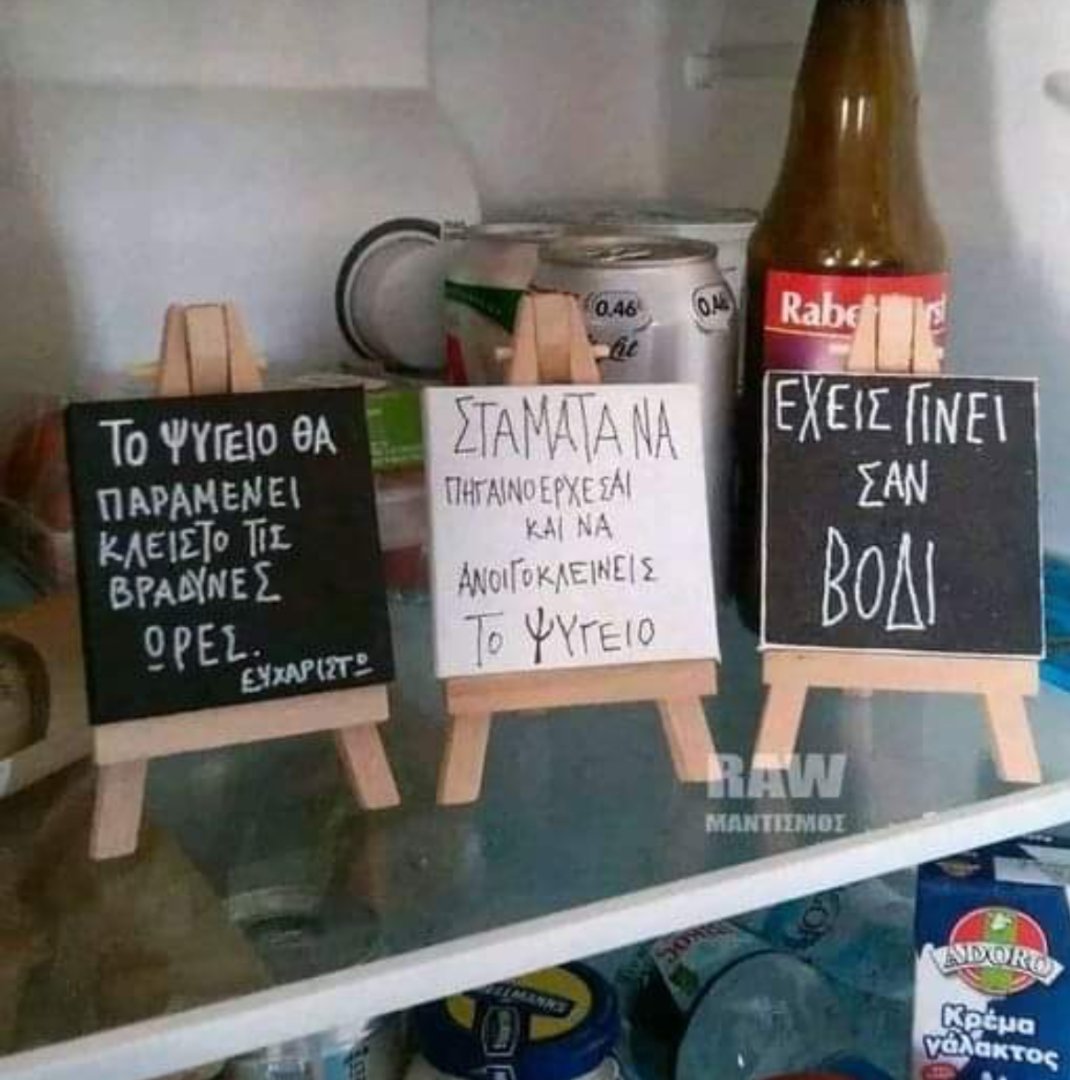 ΤΟ ΨΥΓΕΙΟ ΘΑ
ΠΑΡΑΜΕΝΕΙ
ΚΛΕΙΣΤΟ ΤΙΣ
ΒΡΑΔΥΝΕΣ
ΩΡΕΣ.
ΕΥΧΑΡΙΣΤΩ
ΣΤΑΜΑΤΑ ΝΑ
ΠΗΓΑΙΝΟΕΡΧΕΣΑΙ
ΚΑΙ ΝΑ
ΑΝΟΙΓΟΚΛΕΙΝΕΙΣ
ΤΟ ΨΥΓΕΙΟ
ΕΧΕΙΣ ΓΙΝΕΙ
ΣΑΝ
ΒΟΔΙ
0.46
RAW
ΜΑΝΤΙΣΜΟΣ
ADORO
Κρέμα
γάλακτος